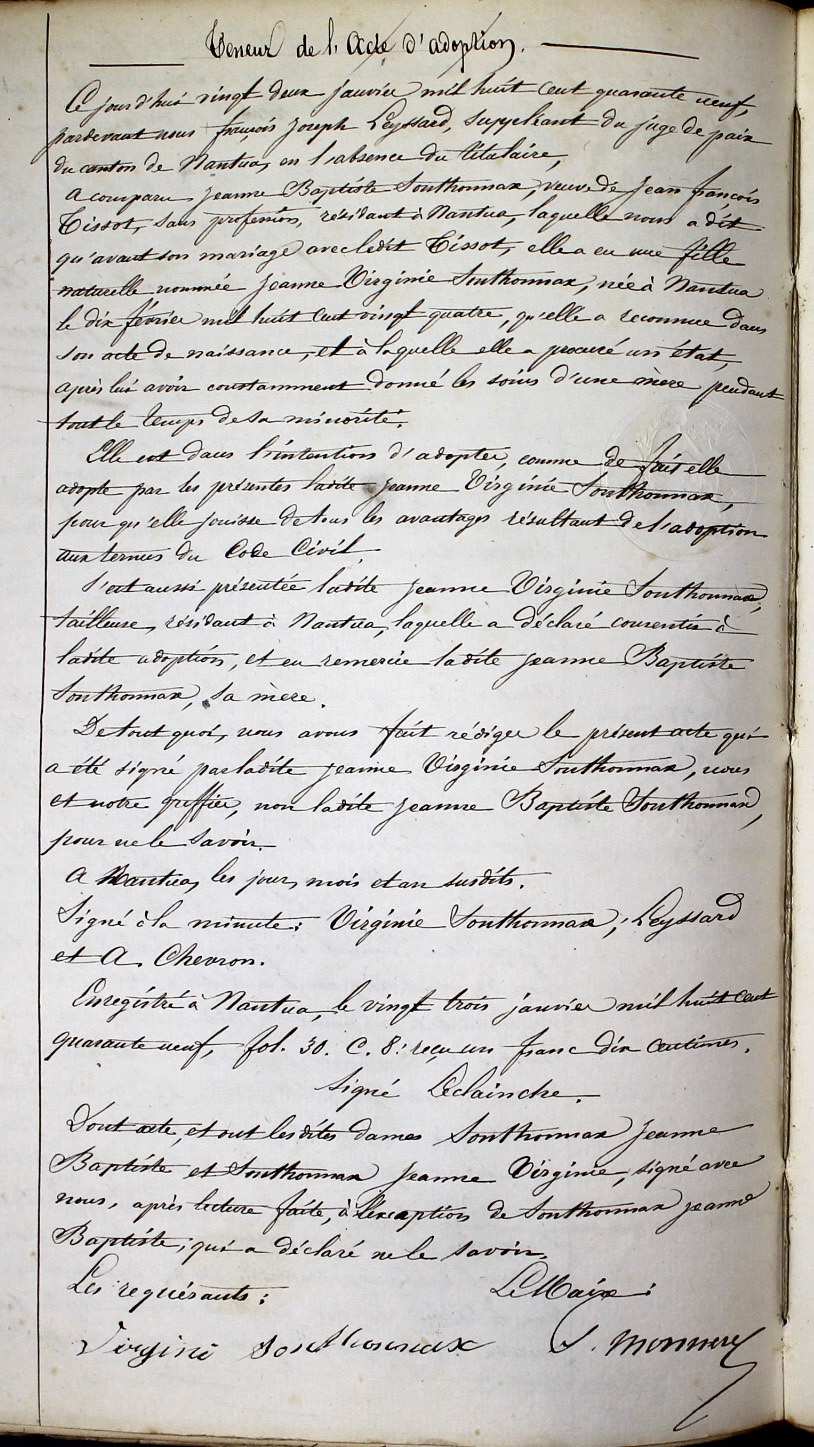 Teneur de l'Acte d'adoption.
Ce jourd'hui vingt deux janvier mil huit cent quarante neuf,
pardevant nous françois Joseph Leyssard, suppléant du juge de paix
du canton de Nantua, en l'absence du titulaire,
a comparu Jeanne Baptiste Sonthonnax, veuve de Jean françois
Tissot, sans profession, résidant à Nantua, laquelle nous a dit
qu'avant son mariage avec ledit Tissot, elle a eu une fille
naturelle nommée Jeanne Virginie Sonthonnax, née à Nantua
le dix février mil huit cent vingt quatre, qu'elle a reconnue dans
son acte de naissance, et à laquelle elle a procuré un état,
après lui avoir constamment donné les soins d'une mère pendant
tout le temps de sa minorité.
Elle est dans l'intention d'adopter, comme de fait elle
adopte par les présentes ladite Jeanne Virginie Sonthonnax,
pour qu'elle jouisse de tous les avantages résultant de l'adoption
aux termes du Code Civil.
S'est aussi présentée ladite Jeanne Virginie Sonthonnax,
tailleuse, résidant à Nantua, laquelle a déclaré consentir à
ladite adoption, et en remercie ladite Jeanne Baptiste
Sonthonnax, sa mère.
De tout quoi, nous avons fait rédiger le présent acte qui
a été signé par ladite Jeanne Virginie Sonthonnax, nous
et notre greffier, non ladite Jeanne Baptiste Sonthonnax,
pour ne le savoir.
A Nantua, les jour, mois et an susdits.
Signé à la minute: Virginie Sonthonnax, Leyssard
et A. Chevron.
Enregistré à Nantua, le vingt trois janvier mil huit cent
quarante neuf, fol. 30. C. 8: reçu un franc dix centimes.
Signé Leclainche.
Dont acte, et ont lesdites dames Sonthonnax Jeanne
Baptiste et Sonthonnax Jeanne Virginie, signé avec
nous, après lecture faite, à l'exception de Sonthonnax Jeanne
Baptiste, qui a déclaré ne le savoir.
Les requérants: Le Maire:
Virginie Sonthonnax